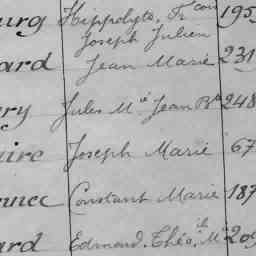 Hippolyte, Fcois 195
Joseph Julien
ard Jean Marie 231
ry Jules Mie Jean Bte 248
aire Joseph Marie 67
Constant Marie 187
ard Edmond, Théo. Mie 209